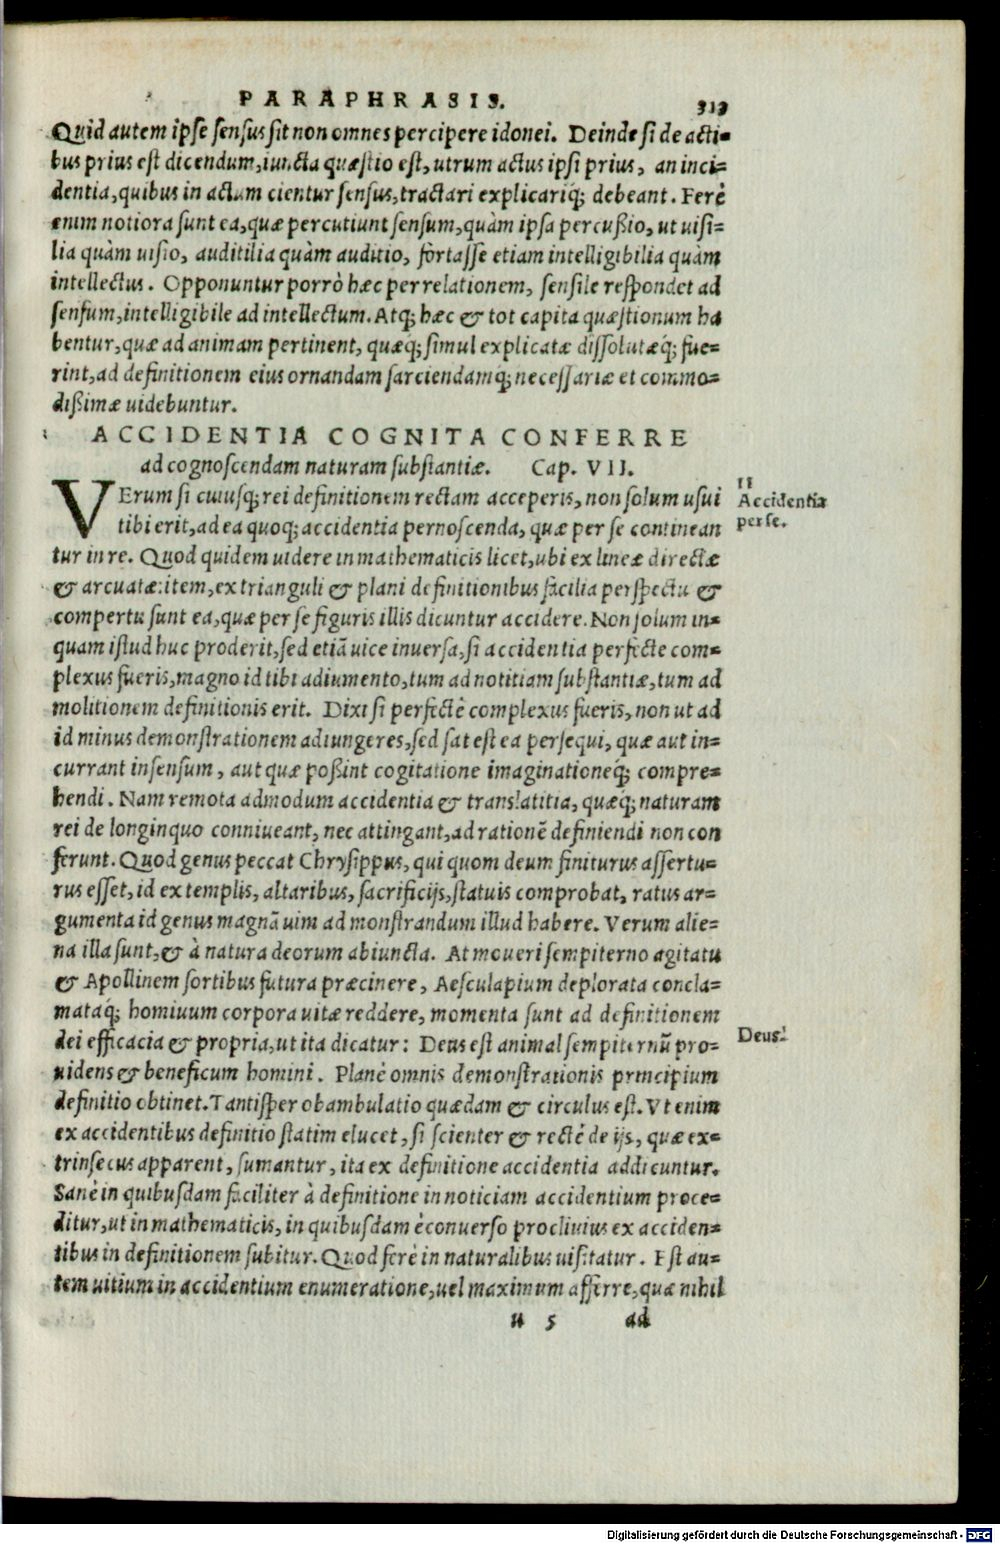 PARAPHRASIS. 313
Quid autem ipse sensus sit non omnes percipere idonei. Deinde si de acti=
bus prius est dicendum, iuncta quæstio est, utrum actus ipsi prius, an inci=
dentia, quibus in actum cientur sensus, tractari explicariq́; debeant. Ferè
enim notiora sunt ea, quæ percutiunt sensum, quàm ipsa percußio, ut uisi=
lia quàm uisio, auditilia quàm auditio, fortasse etiam intelligibilia quàm
intellectus. Opponuntur porrò hæc per relationem, sensile respondet ad
sensum, intelligibile ad intellectum. Atq; hæc & tot capita quæstionum ha
bentur, quæ ad animam pertinent, quæq; simul explicatæ dissolutæq́; fue=
rint, ad definitionem eius ornandam sarciendamq́; necessariæ et commo=
dißimæ uidebuntur.
ACCIDENTIA COGNITA CONFERRE
ad cognoscendam naturam substantiæ. Cap. VII.
VErum si cuiusq; rei definitionem rectam acceperis, non solum usui
tibi erit, ad ea quoq; accidentia pernoscenda, quæ per se continean
tur in re. Quod quidem uidere in mathematicis licet, ubi ex lineæ directæ
& arcuatæ: item, ex trianguli & plani definitionibus facilia perspectu &
compertu sunt ea, quæ per se figuris illis dicuntur accidere. Non solum in=
quam istud huc proderit, sed etiā uice inuersa, si accidentia perfecte com=
plexus fueris, magno id tibi adiumento, tum ad notitiam substantiæ, tum ad
molitionem definitionis erit. Dixi si perfectè complexus fueris, non ut ad
id minus demonstrationem adiungeres, sed sat est ea persequi, quæ aut in=
currant in sensum, aut quæ poßint cogitatione imaginationeq́; compre=
hendi. Nam remota admodum accidentia & translatitia, quæq́; naturam
rei de longinquo conniueant, nec attingant, ad rationē definiendi non con
ferunt. Quod genus peccat Chrysippus, qui quom deum finiturus assertu=
rus esset, id ex templis, altaribus, sacrificijs, statuis comprobat, ratus ar=
gumenta id genus magnā uim ad monstrandum illud habere. Verum alie=
na illa sunt, & à natura deorum abiuncta. At moueri sempiterno agitatu
& Apollinem sortibus futura præcinere, Aesculapium deplorata concla=
mataq́; homiuum corpora uitæ reddere, momenta sunt ad definitionem
dei efficacia & propria, ut ita dicatur: Deus est animal sempiternū pro=
uidens & beneficum homini. Planè omnis demonstrationis principium
definitio obtinet. Tantisper obambulatio quædam & circulus est. Vt enim
ex accidentibus definitio statim elucet, si scienter & rectè de ijs, quæ ex=
trinsecus apparent, sumantur, ita ex definitione accidentia addicuntur.
Sanè in quibusdam faciliter à definitione in noticiam accidentium proce=
ditur, ut in mathematicis, in quibusdam è conuerso procliuius ex acciden=
tibus in definitionem subitur. Quod ferè in naturalibus uisitatur. Est au=
tem uitium in accidentium enumeratione, uel maximum afferre, quæ nihil
u 5 ad
11
Accidentia
per se.
Deus.
Digitalisierung gefördert durch die Deutsche Forschungsgemeinschaft - DFG